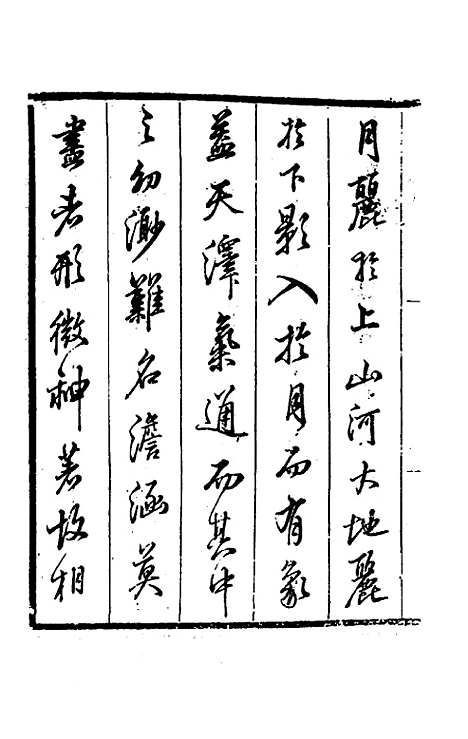 月麗於上山河大地麗
於下影入於月而有象
蓋天澤氣通而其中
之勿渺難名澹涵莫
盡者形微神著故相